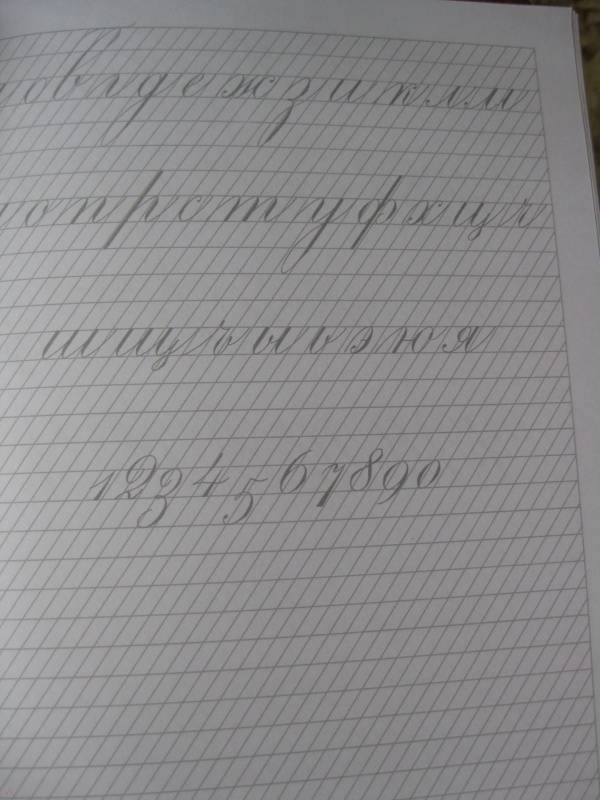 бвгдежзиклм
опрстуфхцч
шщъыьэюя
1234567890